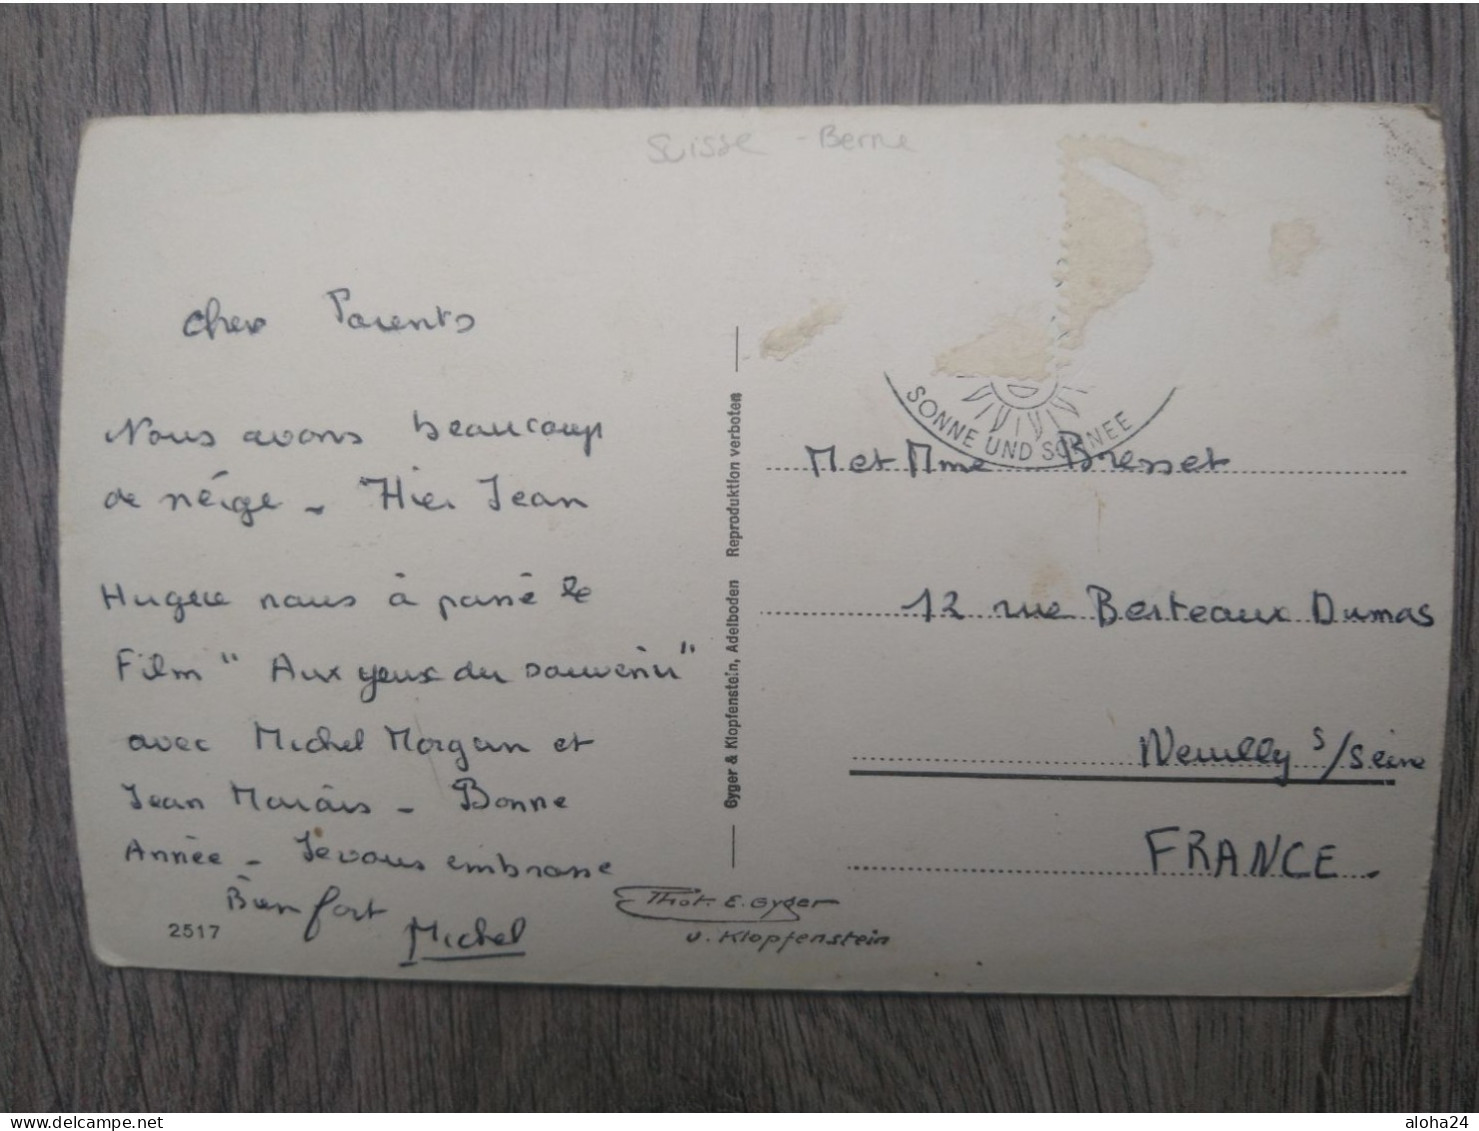 Suisse - Berne
cher Parents
Nous avons beaucoup
de néige - Hier Jean
Hugere nous à passé le
Film " Aux yeux du souvenir "
avec Michel Morgan et
Jean Marais - Bonne
Année - Je vous embrasse
Bien fort
Michel
2517
Gyger & Klopfenstein, Adelboden Reproduktion verboten
Phot. E. Gyger
u. Klopfenstein
SONNE UND SCHNEE
M et Mme Bresset
12 rue Berteaux Dumas
Neuilly s/seine
FRANCE.
www.delcampe.net
aloha24